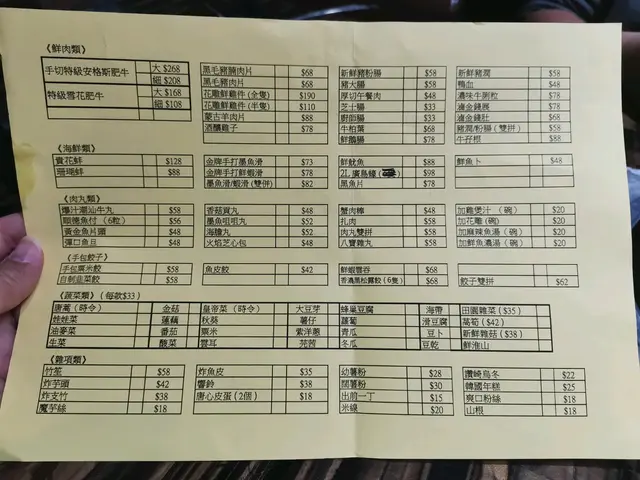 《鮮肉類》
手切特級安格斯肥牛 大 $268
細 $208
特級雪花肥牛 大 $168
細 $108
黑毛豬腩肉片 $68
黑毛豬肉片 $68
花雕鮮雞件 (全隻) $190
花雕鮮雞件 (半隻) $110
蒙古羊肉片 $88
酒釀雞子 $78
新鮮豬粉腸 $58
豬大腸 $58
厚切午餐肉 $48
芝士腸 $33
廚師腸 $33
牛柏葉 $68
鮮鵝腸 $78
新鮮豬潤 $58
鴨血 $48
濃味牛脷粒 $78
滷金錢展 $78
滷金錢肚 $68
豬潤/粉腸 (雙拼) $58
牛孖根 $88
《海鮮類》
貴花蚌 $128
珊瑚蚌 $88
金牌手打墨魚滑 $73
金牌手打鮮蝦滑 $78
墨魚滑/蝦滑 (雙併) $82
鮮魷魚 $88
2L 廣島蠔 $98
黑魚片 $78
鮮魚卜 $48
《肉丸類》
爆汁潮汕牛丸 $58
順德魚付 (6粒) $56
黃金魚片頭 $48
彈口魚旦 $48
香菇貢丸 $48
墨魚咀咀丸 $52
海膽丸 $52
火焰芝心包 $48
蟹肉棒 $48
扎肉 $58
肉丸雙拼 $58
八寶雜丸 $58
加雞煲汁 (碗) $20
加花雕 (碗) $20
加麻辣魚湯 (碗) $20
加鮮魚濃湯 (碗) $20
《手包餃子》
手包粟米餃 $58
自制韭菜餃 $58
魚皮餃 $42
鮮蝦雲吞 $68
香濃黑松露餃 (6隻) $68
餃子雙拼 $62
《蔬菜類》 (每款$33)
唐蒿 (時令) 金菇 皇帝菜 (時令) 大豆芽 蜂巢豆腐 海帶 田園雜菜 ($35)
娃娃菜 蓮藕 秋葵 薯仔 蘿蔔 滑豆腐 萵筍 ($42)
油麥菜 番茄 粟米 紫洋蔥 青瓜 豆卜 新鮮雜菇 ($38)
生菜 酸菜 雲耳 芫茜 冬瓜 豆乾 鮮淮山
《雜項類》
竹笙 $58
炸芋頭 $42
炸支竹 $38
魔芋絲 $18
炸魚皮 $35
響鈴 $38
唐心皮蛋 (2個) $18
幼薯粉 $28
闊薯粉 $30
出前一丁 $15
米線 $20
讚岐烏冬 $22
韓國年糕 $25
爽口粉絲 $18
山根 $18